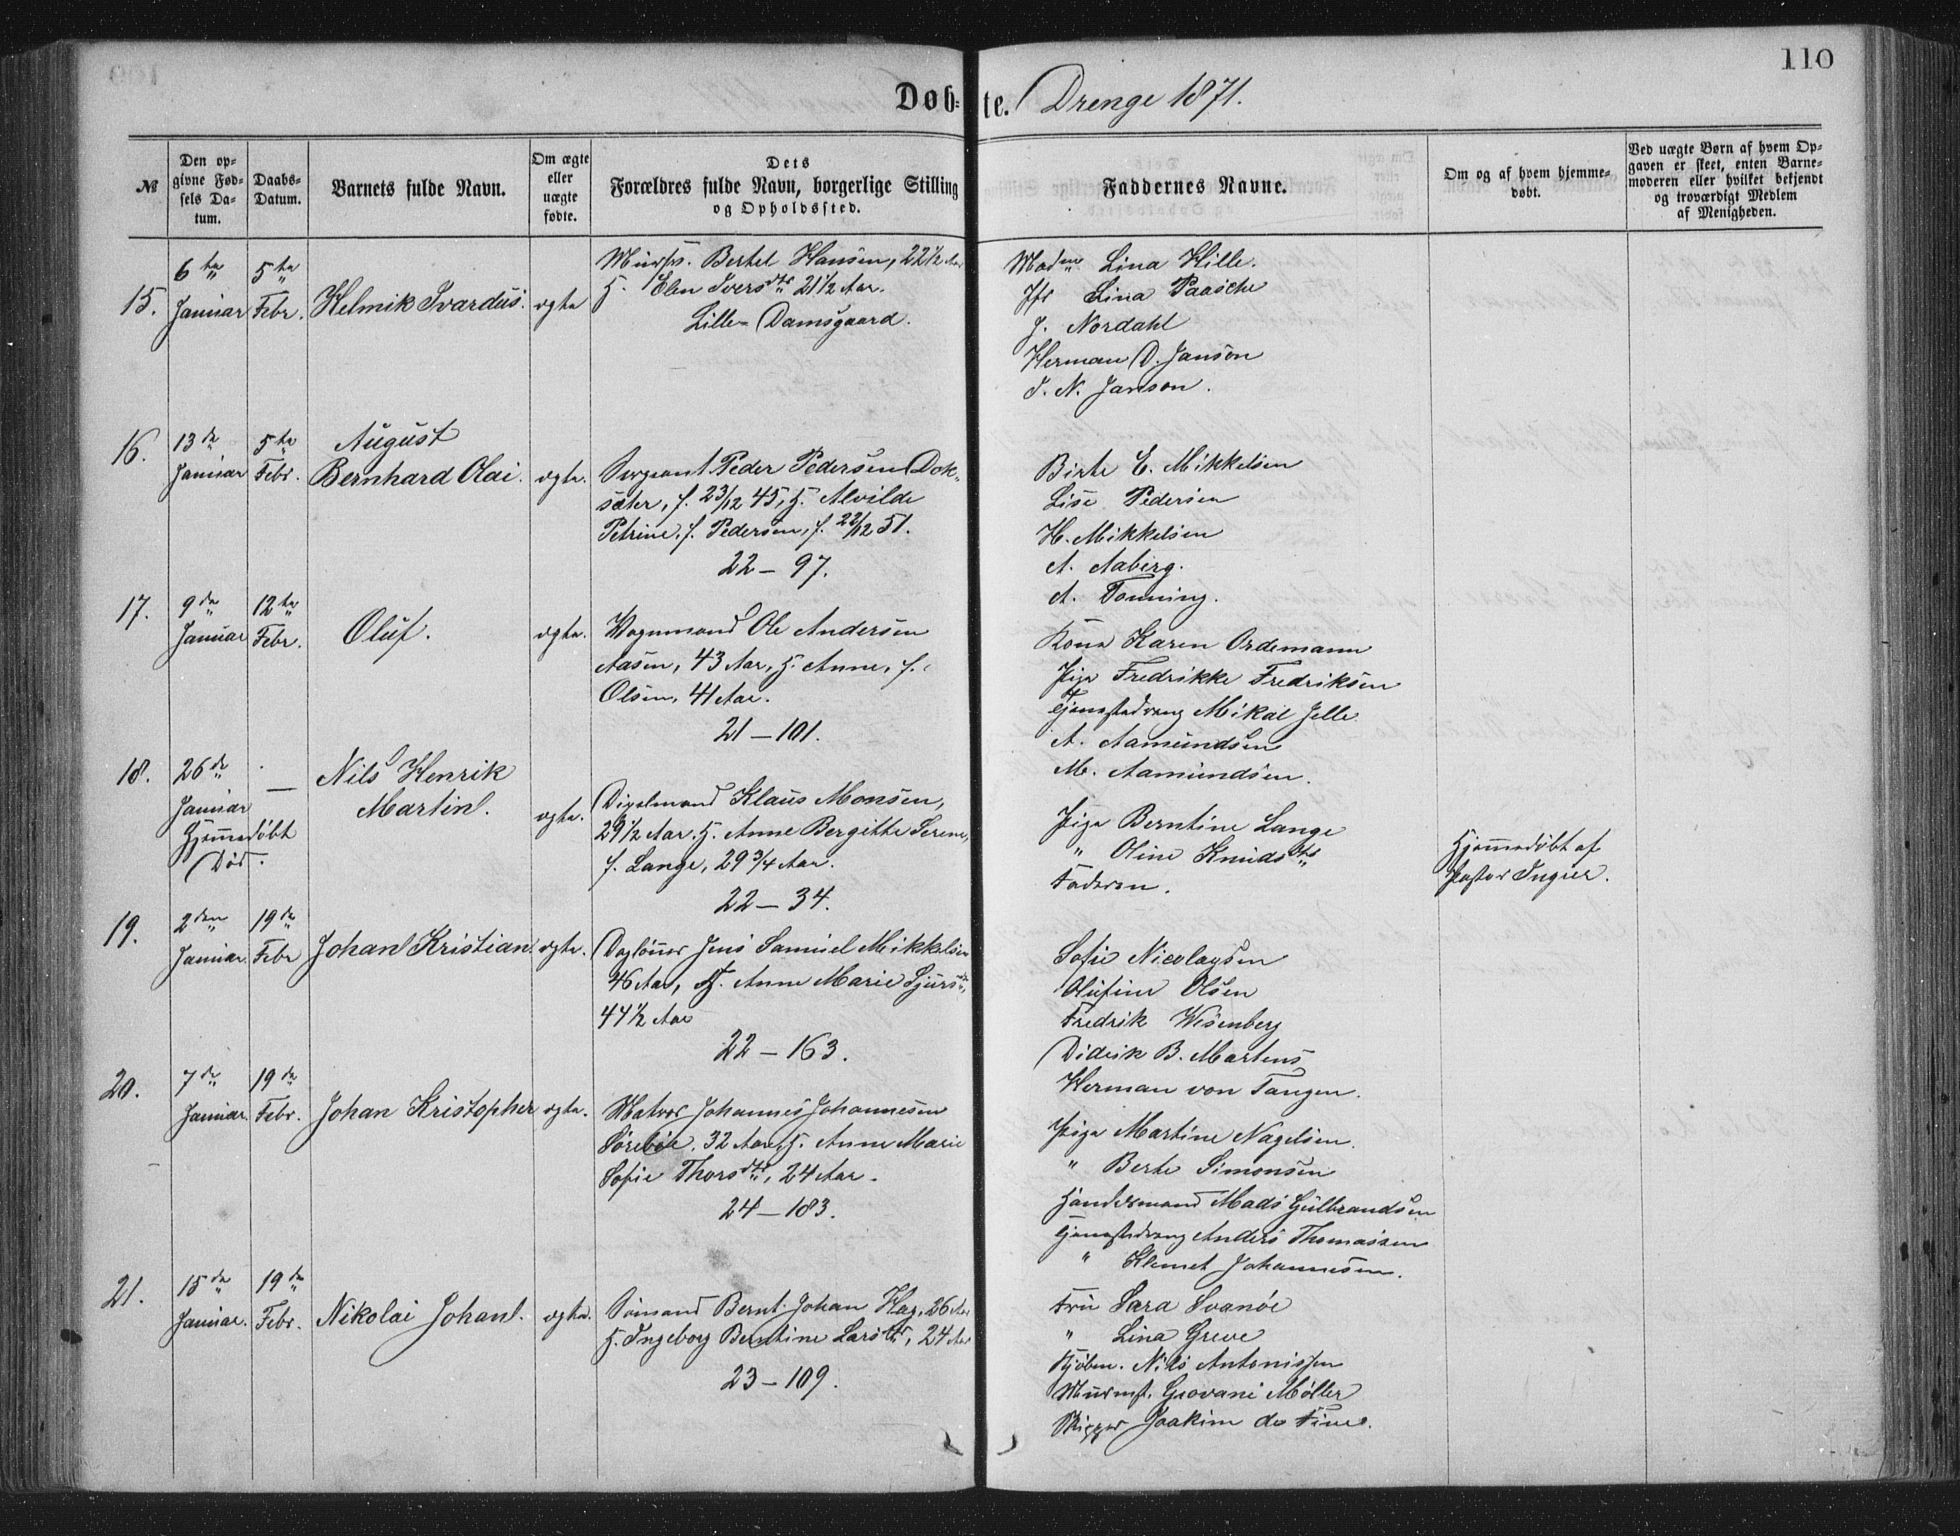 110
Døbte. Drenge 1871.
№
Den opgivne Fødsels Datum.
Daabs-Datum.
Barnets fulde Navn.
Om ægte eller uægte fødte.
Dets Forældres fulde Navn, borgerlige Stilling og Opholdssted.
Faddernes Navne.
Om og af hvem hjemmedøbt.
Ved uægte Børn af hvem Opgaven er skeet, enten Barnemoderen eller hvilket bekjendt og troværdigt Medlem af Menigheden.
15.
6te Januar
5te Febr.
Helmik Ivardus.
ægte
Murss. Bertel Hansen, 22½ Aar
H. Elen Iversdtr 21½ Aar.
Lille-Damsgaard.
Madme Lina Hille.
Jfr Lina Paasche
J. Nordahl
Herman D. Janson
J. N. Janson.
16.
13de Januar
5te Febr.
August
Bernhard Olai.
ægte.
Sergeant Peder Pedersen Dok-
sæter, f. 23/12 45, H. Alvilde
Petrine, f. Pedersen, f. 22/12 51.
22 – 97.
Birte E. Mikkelsen
Lise Pedersen
H. Mikkelsen
A. Aaberg.
A. Tonning.
17.
9de Januar
12te Febr.
Oluf.
ægte.
Vognmand Ole Andersen
Aasen, 43 Aar, H. Anne, f.
Olsen, 41 Aar.
21 – 101.
Kona Karen Ordemann
Pige Fredrikke Fredriksen
Tjenestedreng Mikal Jelle
A. Aamundsen
M. Aamundsen.
18.
26de Januar
Hjemmedøbt
Død.
—
Nils Henrik
Martin.
ægte.
Digelmand Klaus Monsen,
29½ Aar. H. Anne Bergitte Serene,
f. Lange, 29¾ Aar.
22 – 34.
Pige Berntine Lange
" Oline Knudsdtr
Faderen.
Hjemmedøbt af
Pastor Ingier.
19.
2den Januar
19de Febr
Johan Kristian
ægte.
Dagløner Jens Samuel Mikkelsen
46 Aar, H. Anne Marie Sjursd.,
44½ Aar
22 – 163.
Sofie Nicolaysen
Olufine Olsen
Fredrik Wesenberg
Didrik B. Martens
Herman von Tangen.
20.
7de Januar.
19de Febr.
Johan Kristopher
ægte.
Matros Johannes Johannesen
Sørebøe, 32 Aar, H. Anne Marie
Sofie Thorsdtr, 24 Aar.
24 – 183.
Pige Martine Nagelsen.
" Berte Simonsen
Handelsmand Mads Gulbrandsen
Tjenestedreng Anders Thomassen
" Klemet Johannesen.
21.
15de Januar.
19de Febr.
Nikolai Johan.
ægte.
Sømand Bernt Johan Hag, 26 Aar
H. Ingeborg Berntine Larsdtr, 24 Aar
23 – 109.
Fru Sara Svanøe
" Lina Greve
Kjøbm. Nils Antonissen
Murmst. Giovani Møller
Skipper Joakim de Fine.